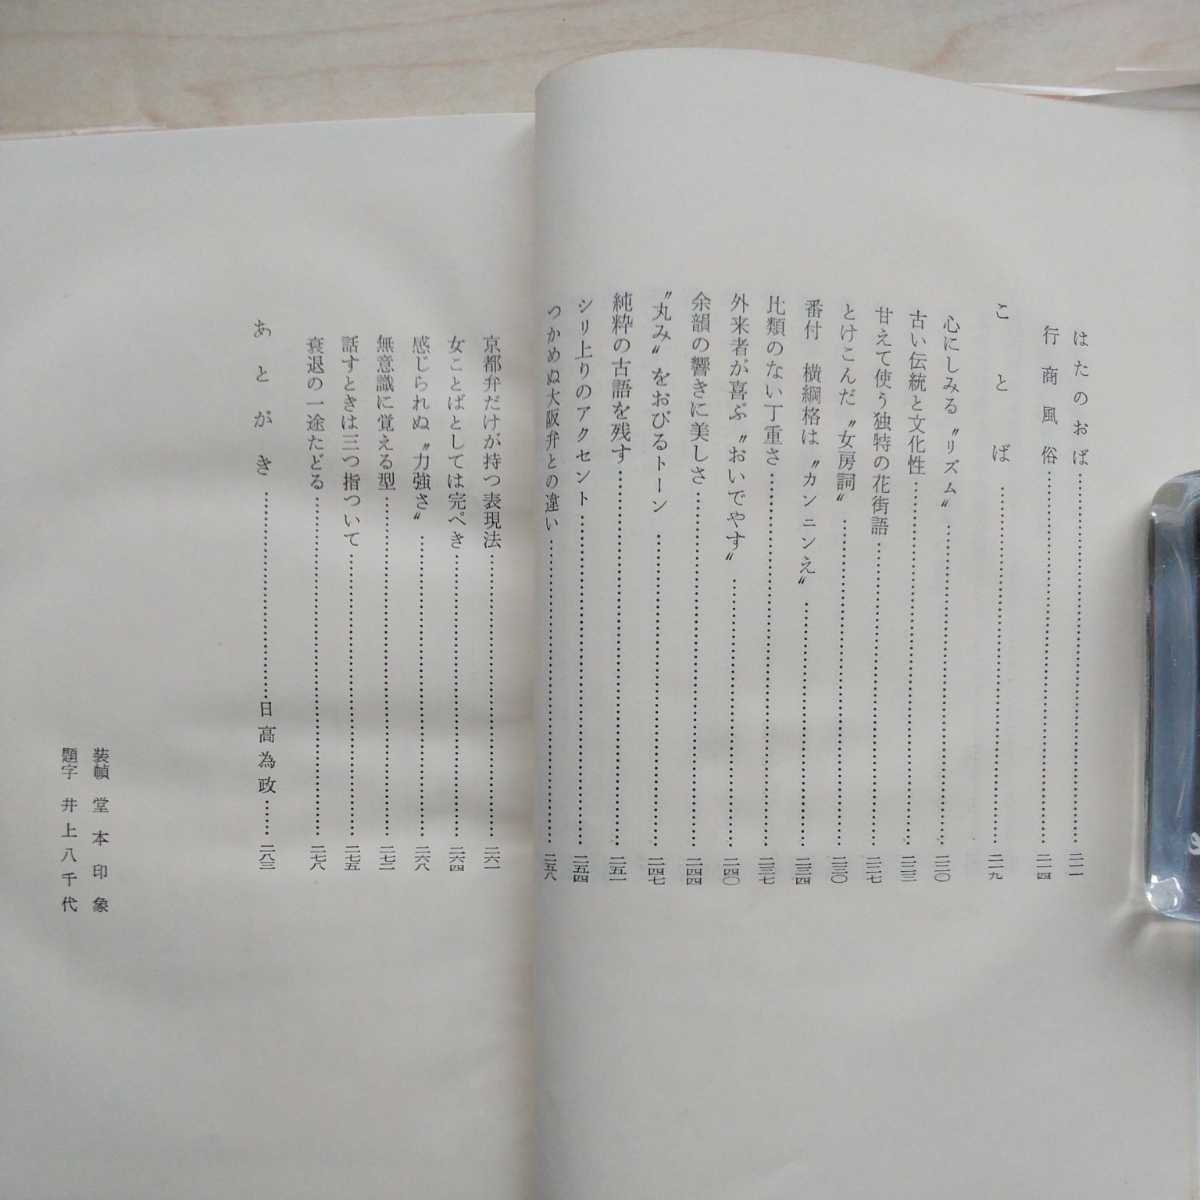 はたのおば……二一一
行商風俗……二一四
ことば……二一九
心にしみる〝リズム〟……二二〇
古い伝統と文化性……二二三
甘えて使う独特の花街語……二二七
とけこんだ〝女房詞〟……二三〇
番付 横綱格は〝カンニンえ〟……二三四
比類のない丁重さ……二三七
外来者が喜ぶ〝おいでやす〟……二四〇
余韻の響きに美しさ……二四四
〝丸み〟をおびるトーン……二四七
純粋の古語を残す……二五一
シリ上りのアクセント……二五四
つかめぬ大阪弁との違い……二五八
京都弁だけが持つ表現法……二六一
女ことばとしては完ぺき……二六四
感じられぬ〝力強さ〟……二六八
無意識に覚える型……二七二
話すときは三つ指ついて……二七五
衰退の一途たどる……二七八
あとがき……日高為政……二八三
装幀 堂本印象
題字 井上八千代